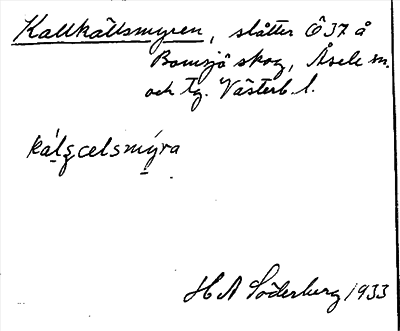 Kallkällsmyren, slåtter Ö37 å
Bomsjö skog, Åsele sn.
och tg. Västerb. l.
kálʒcelsmýra
H A Söderberg 1933